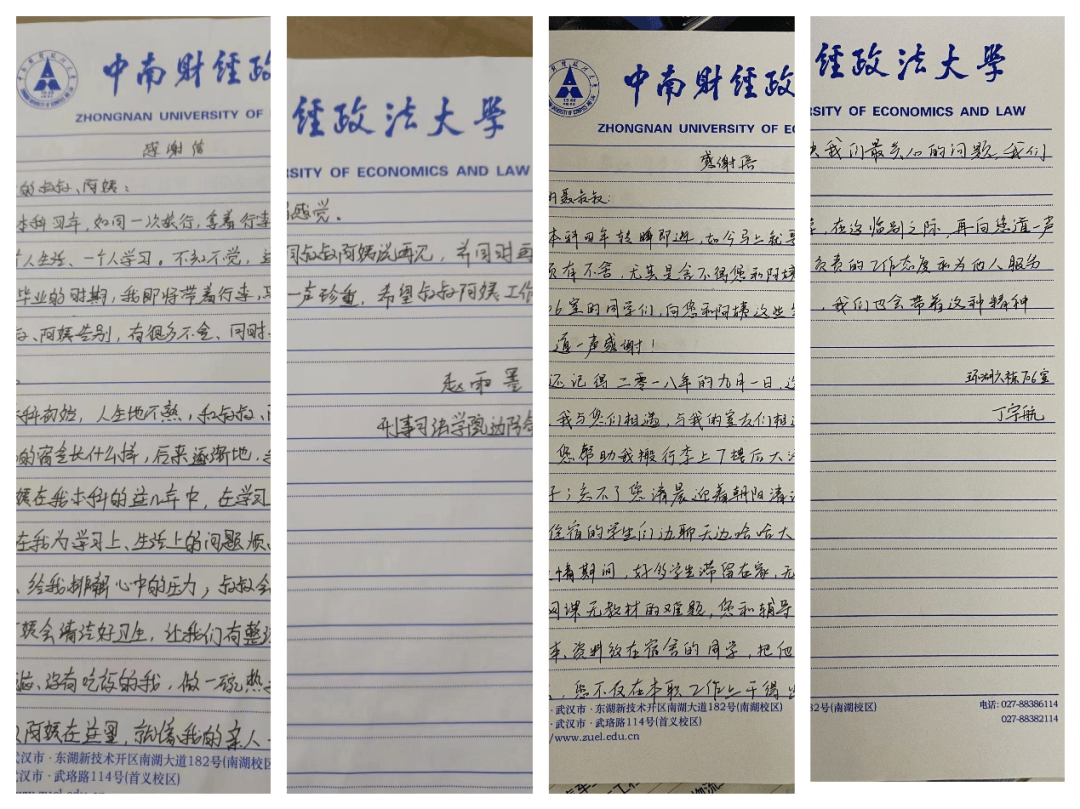 中南财经政
ZHONGNAN UNIVERSITY OF
感谢信
的叔叔、阿姨：
本科四年，如同一次旅行，拿着行李
个人生活、一个人学习。不知不觉，
毕业的时期，我即将带着行李，
、阿姨告别，有很多不舍、同时
科初始，人生地不熟，和叔叔、
的宿舍长什么样，后来逐渐地，
姨在我本科的这几年中，在学习
在我为学习上、生活上的问题烦
、给我排解心中的压力；叔叔会
阿姨会清洁好卫生，让我们有整洁
、没有吃饭的我，做一碗热
阿姨在这里，就像我的亲人
武汉市·东湖新技术开区南湖大道182号(南湖校区
武汉市·武珞路114号(首义校区)
www.zuel.edu.cn
经政法大学
RSITY OF ECONOMICS AND LAW
感觉。
同叔叔阿姨说再见，并同时再
一声珍重，希望叔叔阿姨工作
赵雨墨
刑事司法学院边防
中南财经政
ZHONGNAN UNIVERSITY OF EC
感谢信
聂叔叔：
本科四年转瞬即逝，如今马上就要
有不舍，尤其是舍不得您和阿姨
6室的同学们，向您和阿姨这些
道一声感谢！
还记得二零一八年的九月一日，
我与您们相遇，与我的室友们相
您帮助我搬行李上7楼后大
子；忘不了您清晨迎着朝阳清
住宿的学生们边聊天边哈哈大
情期间，好多学生滞留在家，无
网课无教材的难题，您和辅导
本、资料放在宿舍的同学，把他
，您不仅在本职工作上干得
·武汉市·东湖新技术开区南湖大道182号(南湖校区)
·武汉市·武珞路114号(首义校区)
/www.zuel.edu.cn
经政法大学
RSITY OF ECONOMICS AND LAW
决我们最关心的问题，我们
，在这临别之际，再向您道一声
负责的工作态度和为他人服务
，我们也会带着这种精神
环湖六栋706室
丁宇航
82号(南湖校区)
电话: 027-88386114
027-88382114